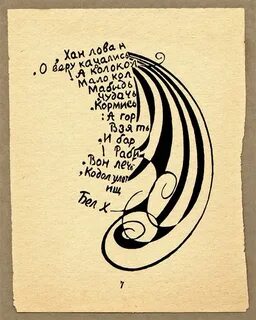 Хан лован
О веру качались
! А колокол
Мало кол
Мабидь
чудачь
Кормись
: А гор
Взять
И бар
! Раби
Вон лечь
Кодол улет
ищ
Бел Х
7